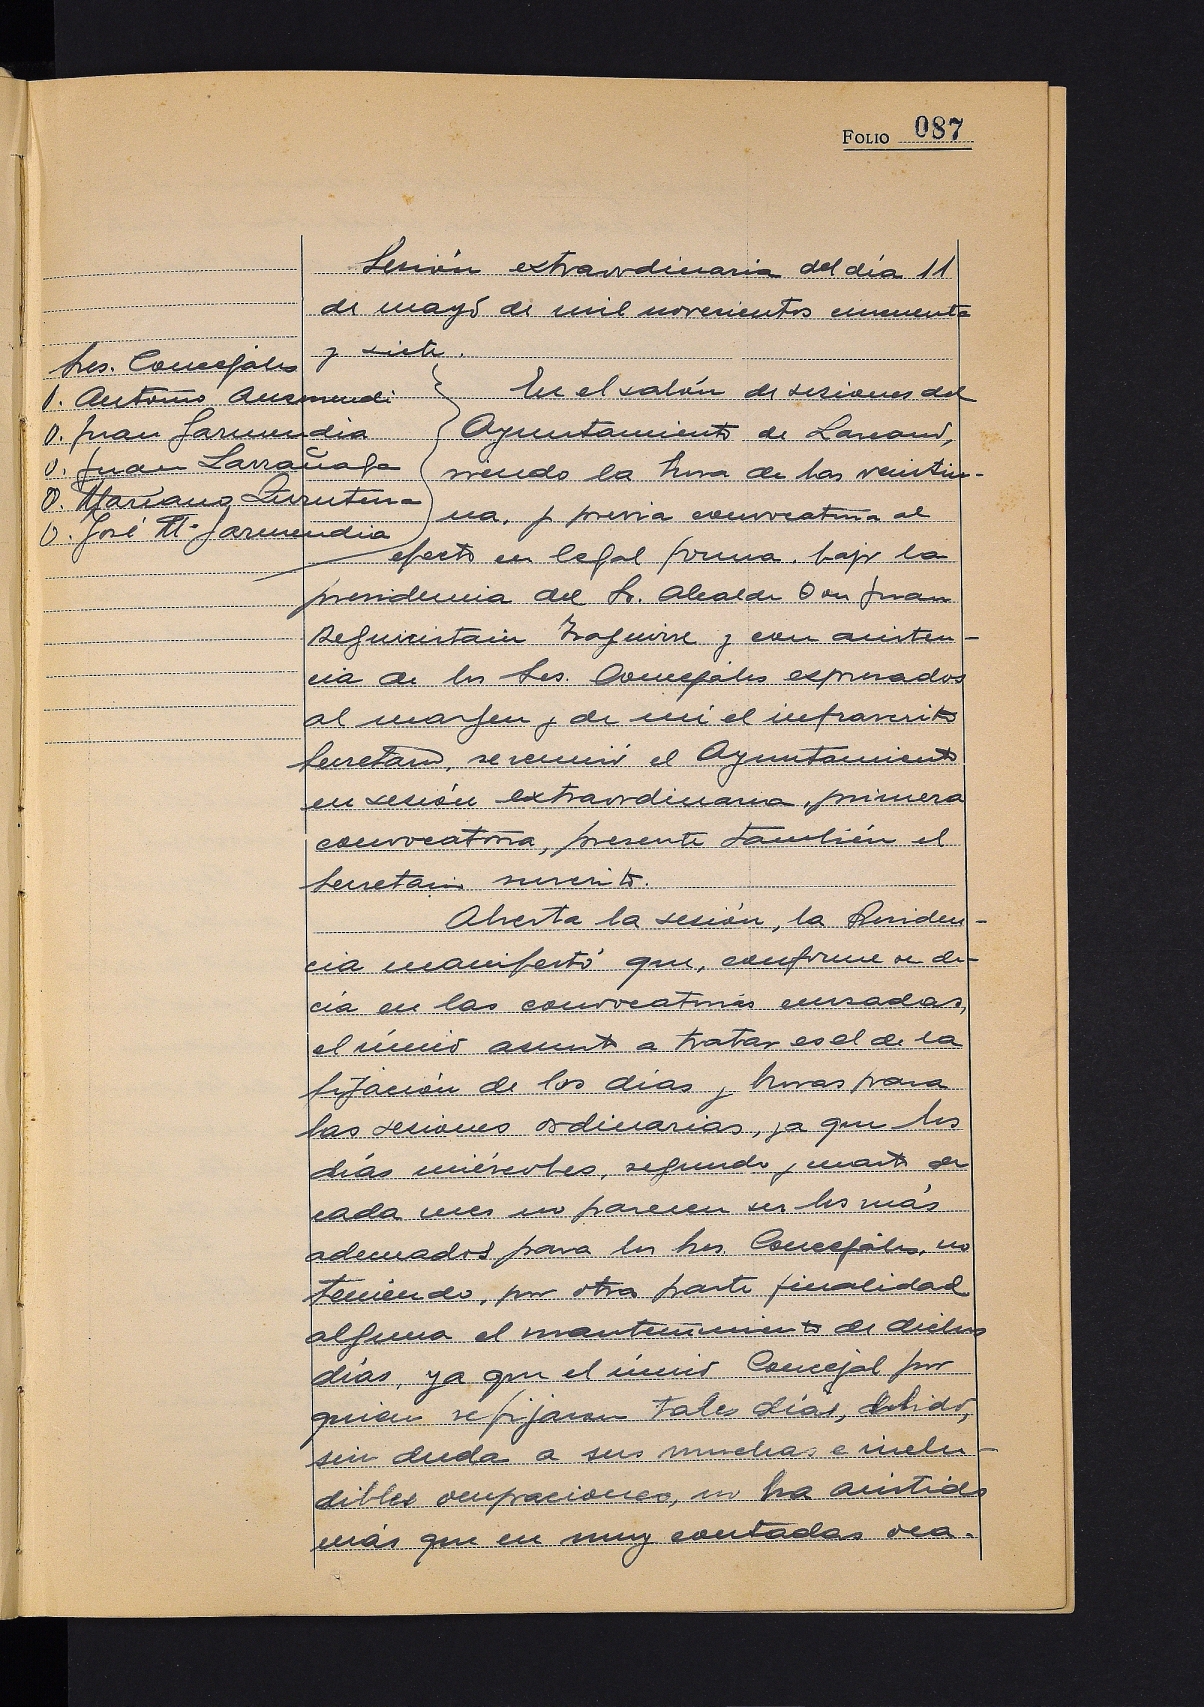 FOLIO 087
Sesión extraordinaria del día 11
de mayo de mil novecientos cincuenta
y siete.
Sres. Concejales
D. Antonio Ausmendi
D. Juan Garmendia
D. Juan Larrañaga
D. Mariano
D. José Mª Garmendia
En el salón de sesiones del
Ayuntamiento de Lazcano,
siendo la hora de las veintiu-
na, y previa convocatoria al
efecto en legal forma, bajo la
presidencia del Sr. Alcalde Don Juan
Iraguirre y con asisten-
cia de los Sres. Concejales expresados
al margen y de mí el infrascrito
Secretario, se reunió el Ayuntamiento
en sesión extraordinaria, primera
convocatoria, presente también el
Secretario suscrito.
Abierta la sesión, la Presiden-
cia manifestó que, conforme se de-
cía en las convocatorias cursadas,
el único asunto a tratar es el de la
fijación de los días y horas para
las sesiones ordinarias, ya que los
días miércoles, segundo y cuarto de
cada mes no parecen ser los más
adecuados para los Sres. Concejales, no
teniendo, por otra parte finalidad
alguna el mantenimiento de dichos
días, ya que el único Concejal por
quien se fijaron tales días, debido,
sin duda a sus muchas e inelu-
dibles ocupaciones, no ha asistido
más que en muy contadas oca-